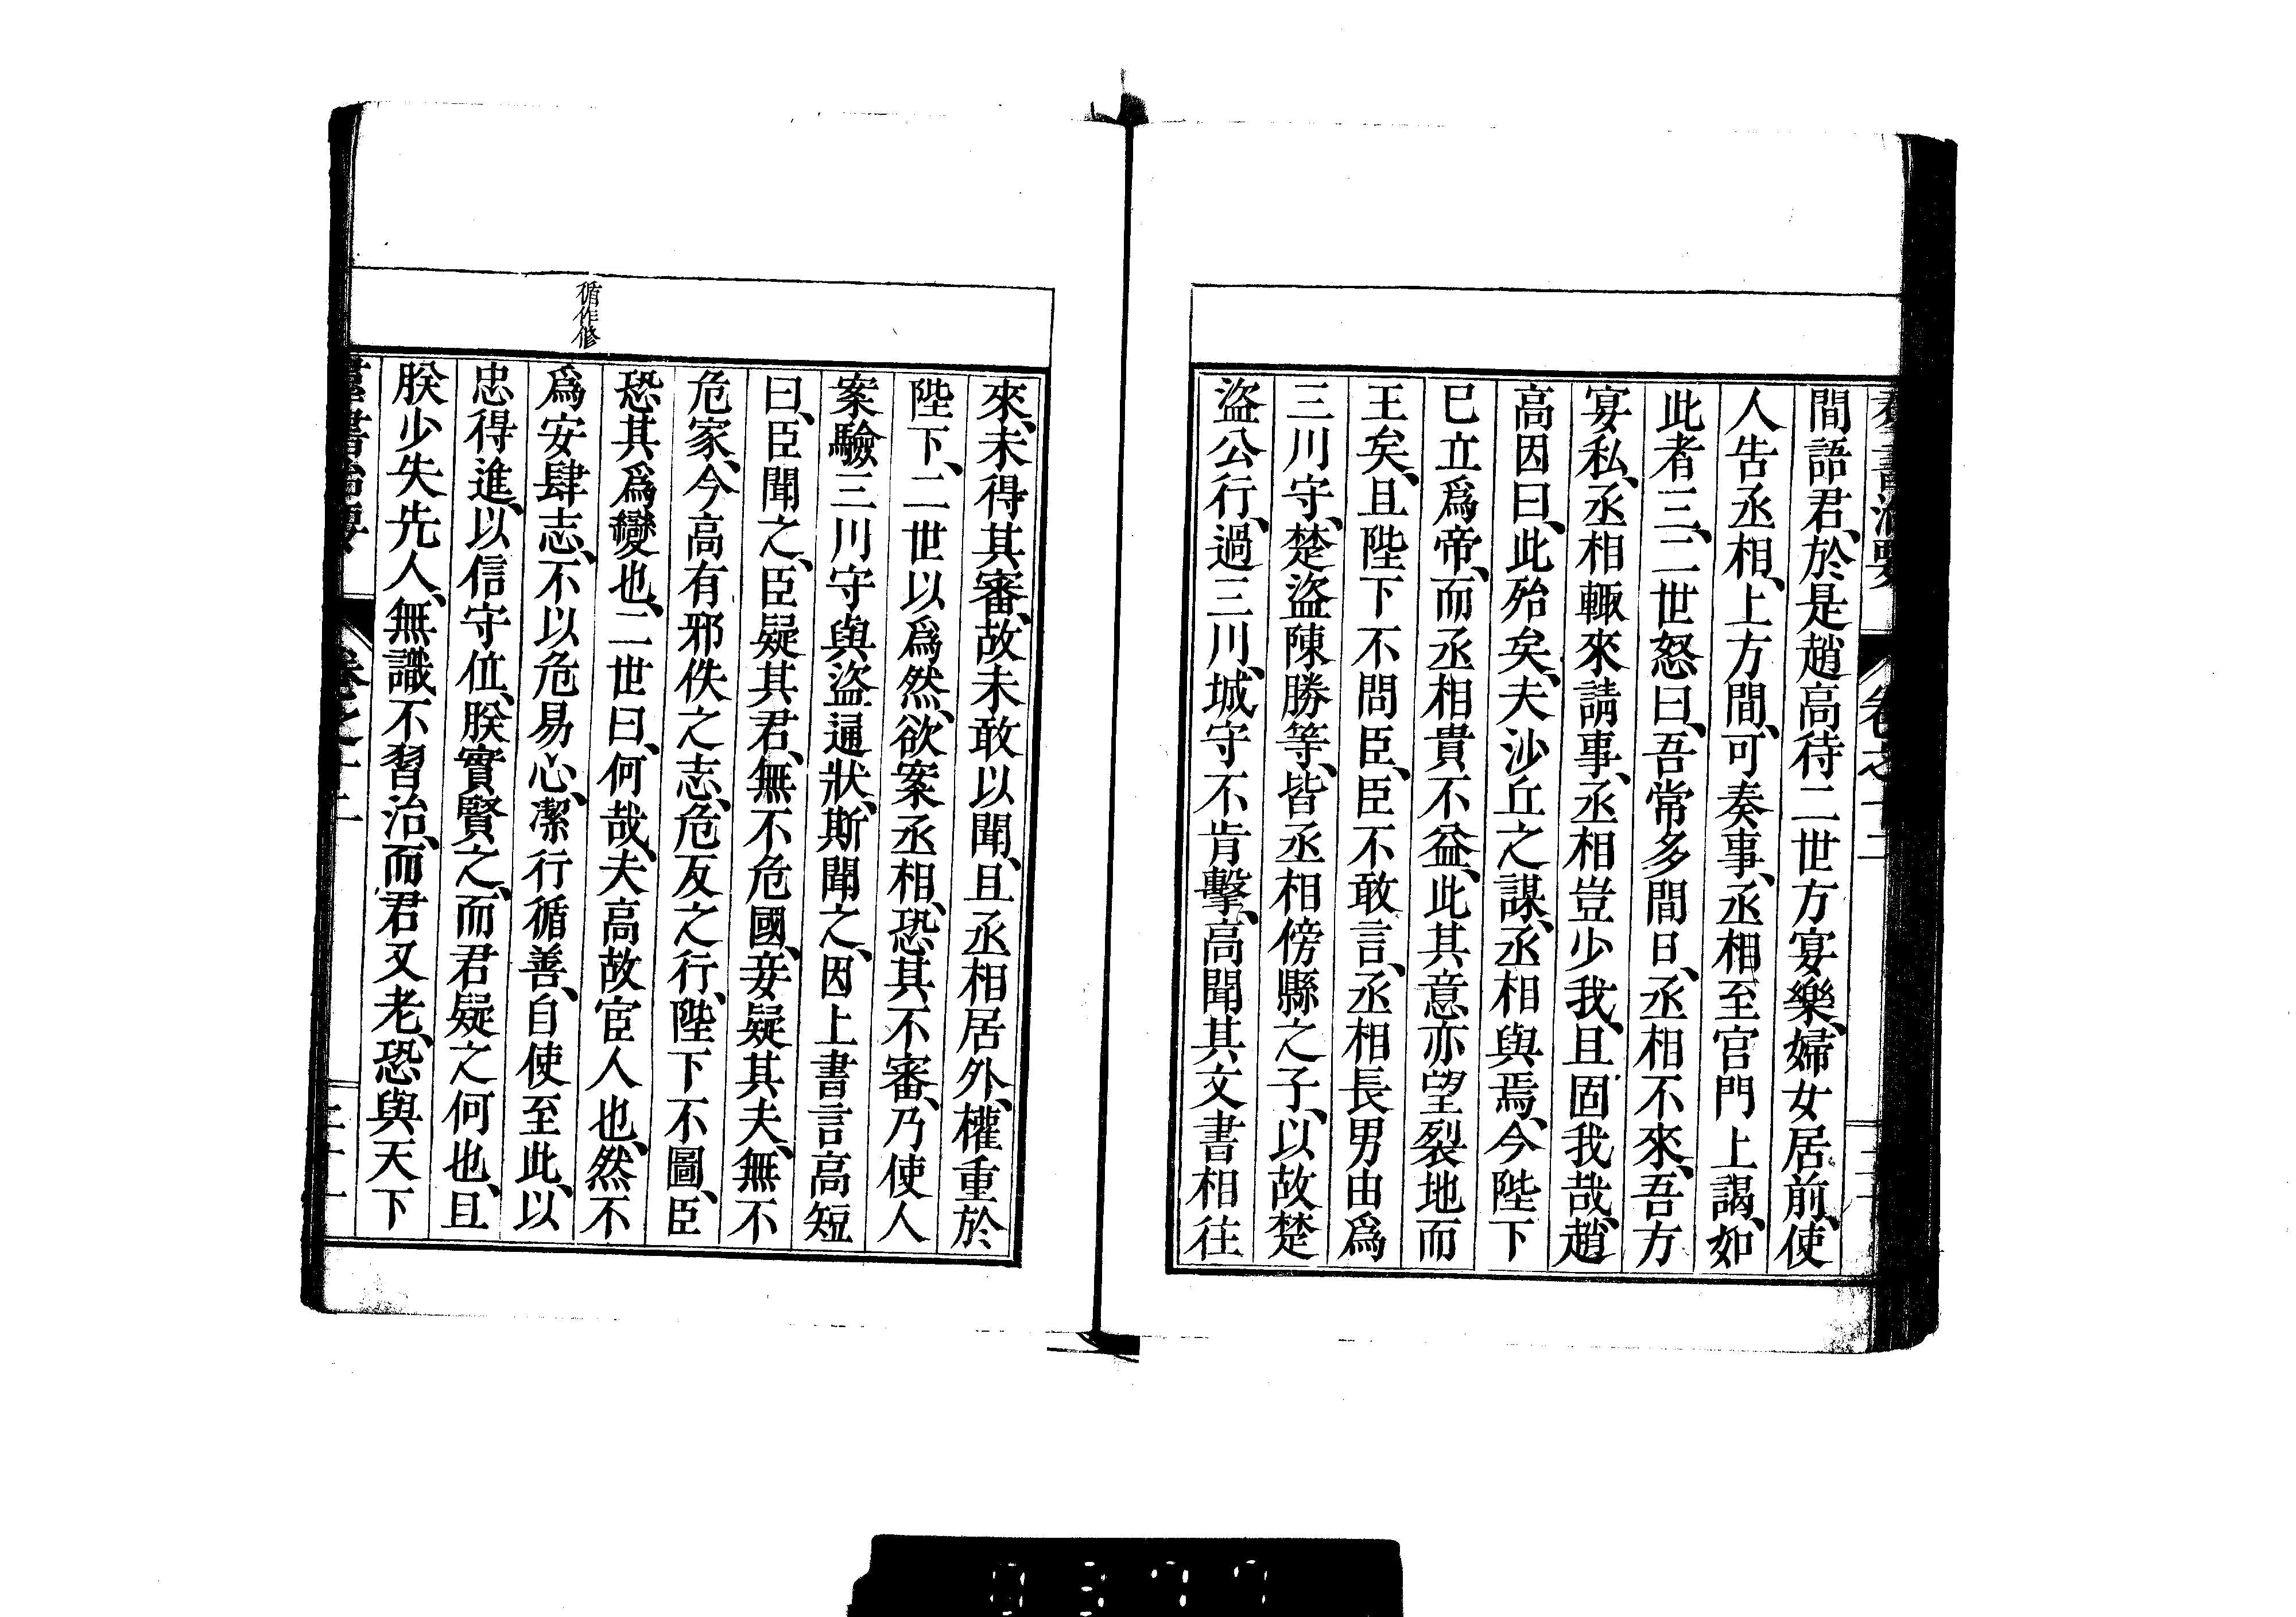 羣書治要 卷之十二
間語君、於是趙高待二世方宴樂、婦女居前、使
人告丞相、上方間、可奏事、丞相至宫門上謁、如
此者三、二世怒曰、吾常多間日、丞相不來、吾方
宴私、丞相輙來請事、丞相豈少我、且固我哉、趙
高因曰、此殆矣、夫沙丘之謀、丞相與焉、今陛下
已立爲帝、而丞相貴不益、此其意亦望裂地而
王矣、且陛下不問臣、臣不敢言、丞相長男由爲
三川守、楚盜陳勝等、皆丞相傍縣之子、以故楚
盜公行、過三川、城守不肯擊、高聞其文書相往
來、未得其審、故未敢以聞、且丞相居外、權重於
陛下、二世以爲然、欲案丞相、恐其不審、乃使人
案驗三川守與盜通狀、斯聞之、因上書言高短
曰、臣聞之、臣疑其君、無不危國、妾疑其夫、無不
危家、今高有邪佚之志、危反之行、陛下不圖、臣
恐其爲變也、二世曰、何哉、夫高故宦人也、然不
循作修
爲安肆志、不以危易心、潔行循善、自使至此、以
忠得進、以信守位、朕實賢之、而君疑之何也、且
朕少失先人、無識不習治、而君又老、恐與天下
羣書治要 卷之十二